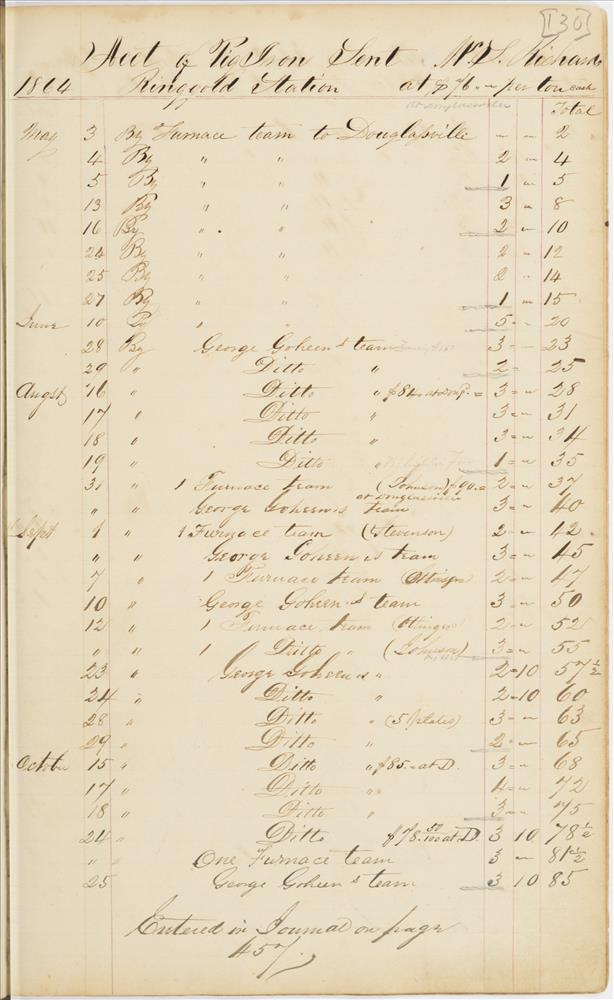 [130]
Acct of Pig Iron Sent W. S. Richards
1864 Ringgold Station at $76 = per ton each
at Douglassville
Total
May 3 By Furnace team to Douglassville — — 2
4 By " " 2 — 4
5 By " " 1 — 5
13 By " " 3 — 8
16 By " " 2 — 10
24 By " " 2 — 12
25 By " " 2 — 14
27 By " " 1 — 15
June 10 By " " 5 — 20
28 By George Goheen's team 3 — 23
29 " Ditto " 2 — 25
Augst 16 " Ditto " $84. at = 3 = " 28
17 " Ditto " 3 = " 31
18 " Ditto " 3 = " 34
19 " Ditto " 1 = " 35
31 " 1 Furnace team (Johnson) $90. = 2 = " 37
at Douglassville
" " George Goheen's team 3 = " 40
Sept 1 " 1 Furnace team (Stevenson) 2 = " 42
" " George Goheen's team 3 = " 45
7 " 1 Furnace team 2 = " 47
10 " George Goheen's team 3 = " 50
12 " 1 Furnace team 2 = " 52
" " 1 Ditto " (Johnson) 3 = " 55
23 " George Goheen's " 2 = 10 57 1/2
24 " Ditto 2 = 10 60
28 " Ditto " (5 plates) 3 = " 63
29 " Ditto " 2 = " 65
Octobr 15 " Ditto " $85 = at D. 3 = " 68
17 " Ditto " " 4 = " 72
18 " Ditto " 3 = " 75
24 " Ditto $78. 50/100 at D. 3 10 78 1/2
" " One Furnace team 3 " 81 1/2
25 George Goheen's team 3 10 85
Entered in Journal on page
457